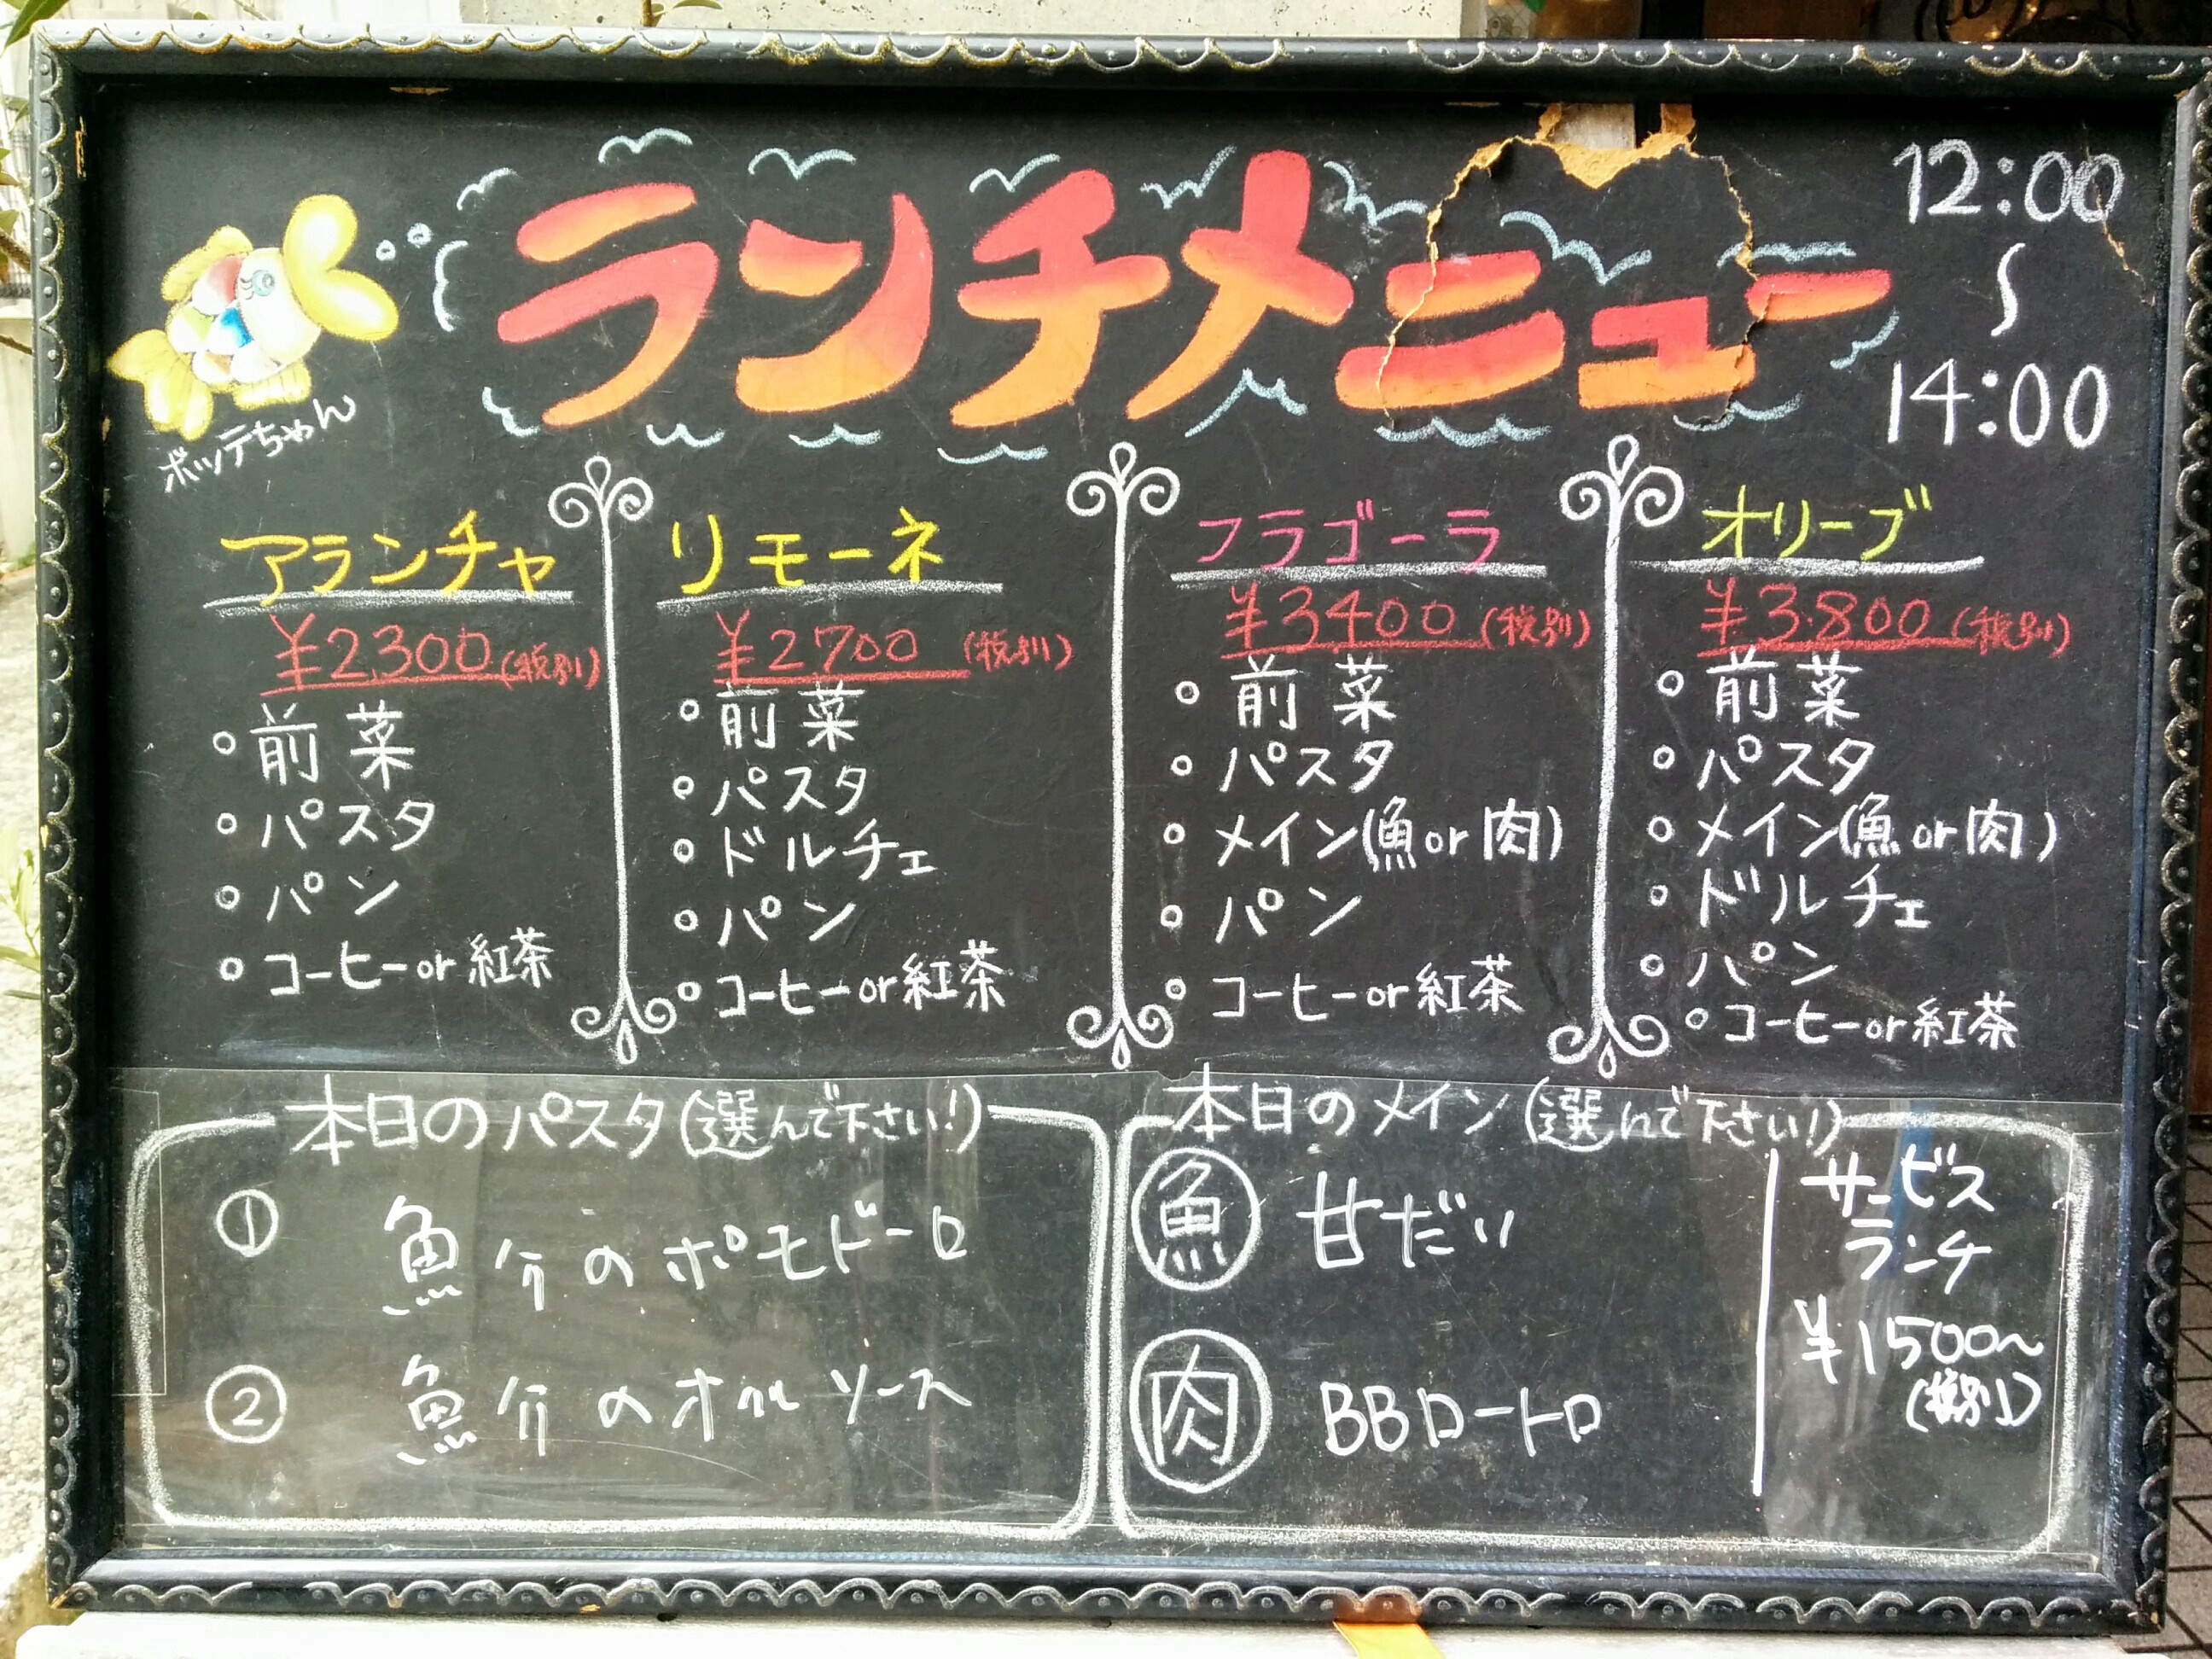 ランチメニュー
12:00
〜
14:00
ボッテちゃん
アランチャ
¥2,300(税別)
○前菜
○パスタ
○パン
○コーヒーor紅茶
リモーネ
¥2700(税別)
○前菜
○パスタ
○ドルチェ
○パン
○コーヒーor紅茶
フラゴーラ
¥3400(税別)
○前菜
○パスタ
○メイン(魚or肉)
○パン
○コーヒーor紅茶
オリーブ
¥3.800(税別)
○前菜
○パスタ
○メイン(魚or肉)
○ドルチェ
○パン
○コーヒーor紅茶
本日のパスタ(選んで下さい!)
① 魚介のポモドーロ
② 魚介のオイルソース
本日のメイン(選んで下さい!)
魚 甘だい
肉 BBロートロ
サービス
ランチ
¥1500〜
(税別)